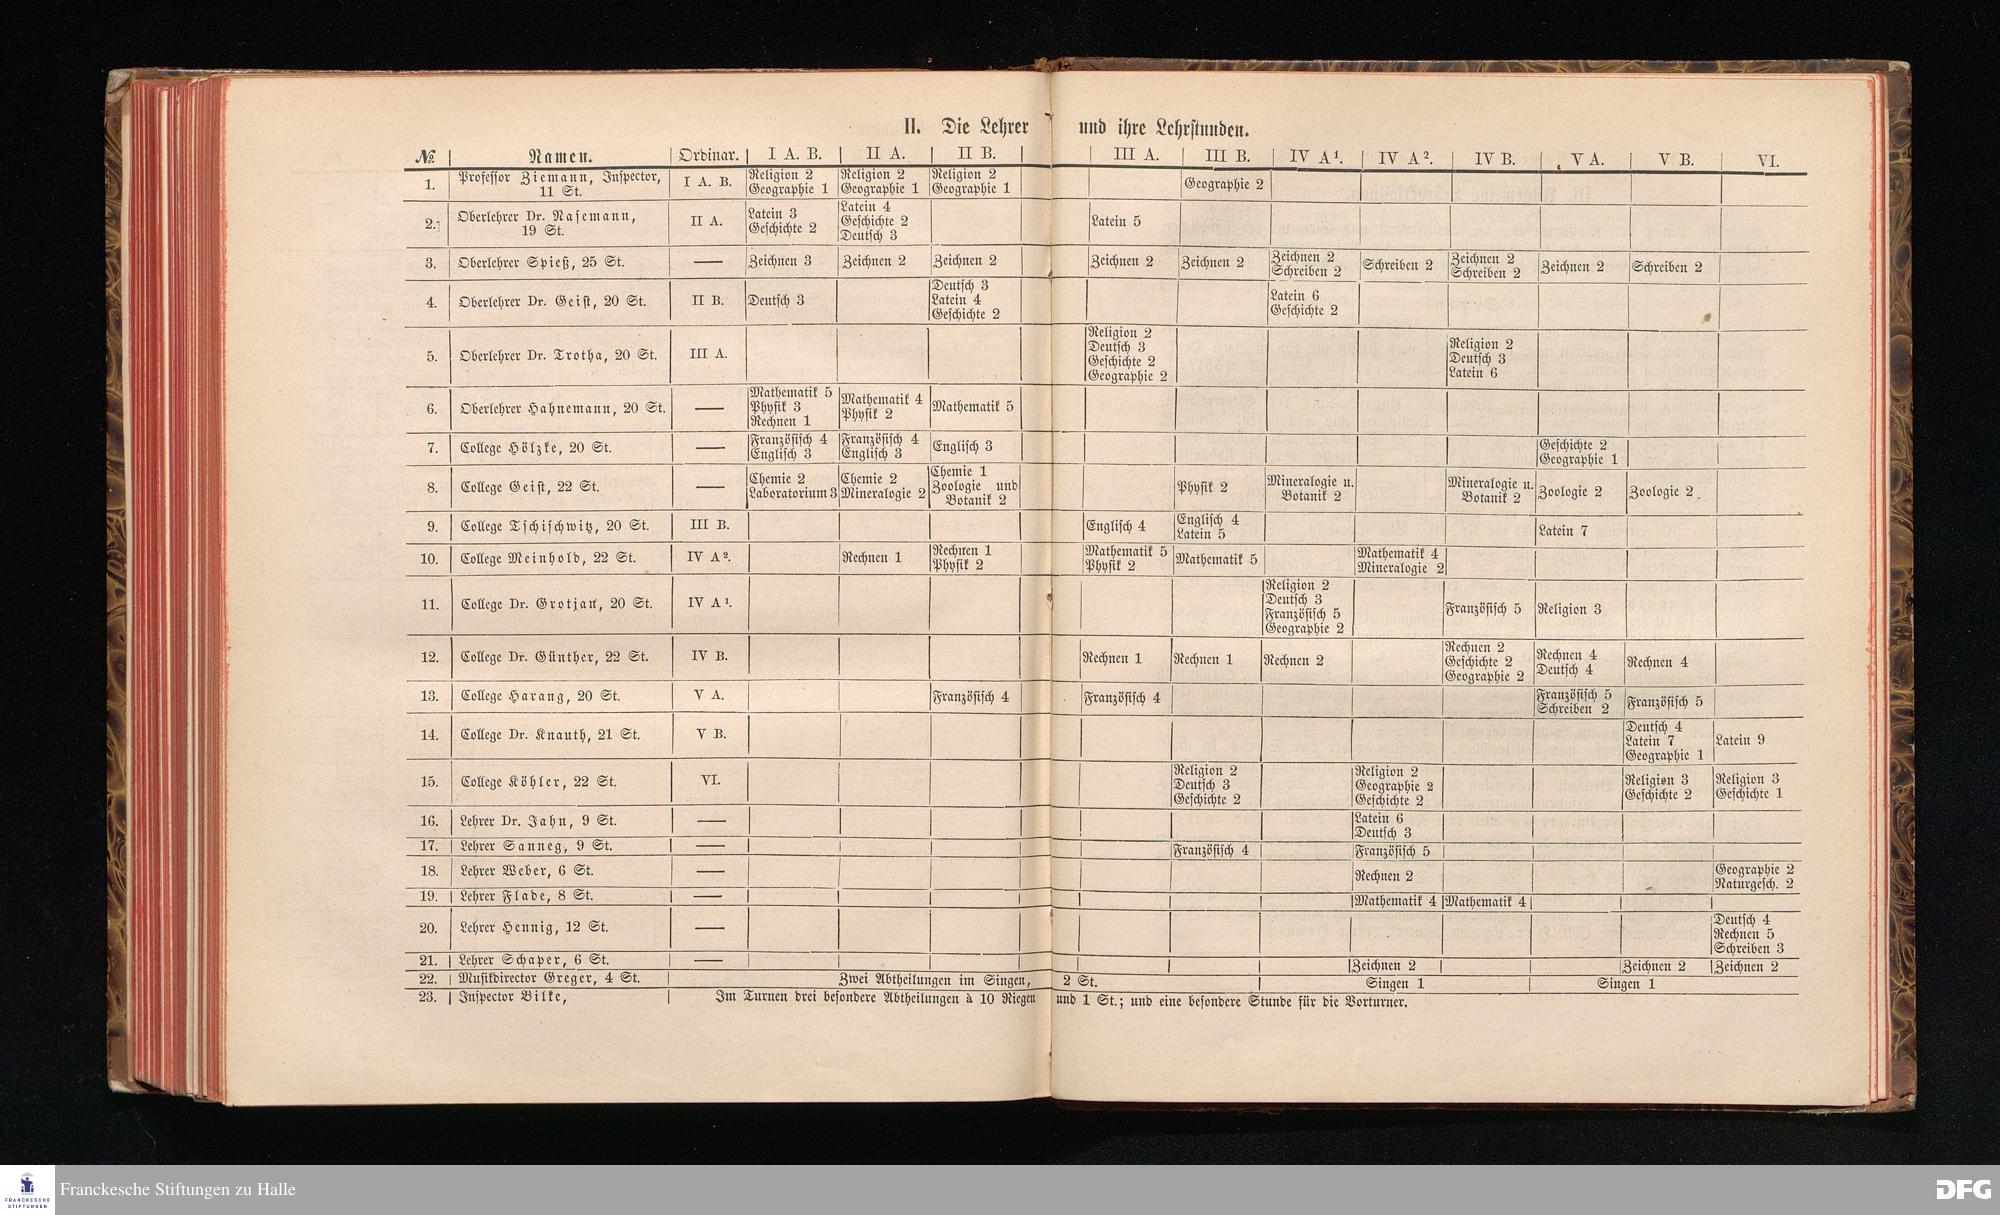 II. Die Lehrer und ihre Lehrstunden.
№ Namen. Ordinar. I A. B. II A. II B. III A. III B. IV A¹. IV A². IV B. V A. V B. VI.
1. Professor Ziemann, Inspector, 11 St. I A. B. Religion 2 Geographie 1 Religion 2 Geographie 1 Religion 2 Geographie 1 Geographie 2
2. Oberlehrer Dr. Nasemann, 19 St. II A. Latein 3 Geschichte 2 Latein 4 Geschichte 2 Deutsch 3 Latein 5
3. Oberlehrer Spieß, 25 St. — Zeichnen 3 Zeichnen 2 Zeichnen 2 Zeichnen 2 Zeichnen 2 Zeichnen 2 Schreiben 2 Schreiben 2 Zeichnen 2 Schreiben 2 Zeichnen 2 Schreiben 2
4. Oberlehrer Dr. Geist, 20 St. II B. Deutsch 3 Deutsch 3 Latein 4 Geschichte 2 Latein 6 Geschichte 2
5. Oberlehrer Dr. Trotha, 20 St. III A. Religion 2 Deutsch 3 Geschichte 2 Geographie 2 Religion 2 Deutsch 3 Latein 6
6. Oberlehrer Hahnemann, 20 St. — Mathematik 5 Physik 3 Rechnen 1 Mathematik 4 Physik 2 Mathematik 5
7. College Hölzke, 20 St. — Französisch 4 Englisch 3 Französisch 4 Englisch 3 Englisch 3 Geschichte 2 Geographie 1
8. College Geist, 22 St. — Chemie 2 Laboratorium 3 Chemie 2 Mineralogie 2 Chemie 1 Zoologie und Botanik 2 Physik 2 Mineralogie u. Botanik 2 Mineralogie u. Botanik 2 Zoologie 2 Zoologie 2
9. College Tschischwitz, 20 St. III B. Englisch 4 Englisch 4 Latein 5 Latein 7
10. College Meinhold, 22 St. IV A². Rechnen 1 Rechnen 1 Physik 2 Mathematik 5 Physik 2 Mathematik 5 Mathematik 4 Mineralogie 2
11. College Dr. Grotjan, 20 St. IV A¹. Religion 2 Deutsch 3 Französisch 5 Geographie 2 Französisch 5 Religion 3
12. College Dr. Günther, 22 St. IV B. Rechnen 1 Rechnen 1 Rechnen 2 Rechnen 2 Geschichte 2 Geographie 2 Rechnen 4 Deutsch 4 Rechnen 4
13. College Harang, 20 St. V A. Französisch 4 Französisch 4 Französisch 5 Schreiben 2 Französisch 5
14. College Dr. Knauth, 21 St. V B. Deutsch 4 Latein 7 Geographie 1 Latein 9
15. College Köhler, 22 St. VI. Religion 2 Deutsch 3 Geschichte 2 Religion 2 Geographie 2 Geschichte 2 Religion 3 Geschichte 2 Religion 3 Geschichte 1
16. Lehrer Dr. Jahn, 9 St. — Latein 6 Deutsch 3
17. Lehrer Sanneg, 9 St. — Französisch 4 Französisch 5
18. Lehrer Weber, 6 St. — Rechnen 2 Geographie 2 Naturgesch. 2
19. Lehrer Flade, 8 St. — Mathematik 4 Mathematik 4
20. Lehrer Hennig, 12 St. — Deutsch 4 Rechnen 5 Schreiben 3
21. Lehrer Schaper, 6 St. — Zeichnen 2 Zeichnen 2 Zeichnen 2
22. Musikdirector Greger, 4 St. Zwei Abtheilungen im Singen, 2 St. Singen 1 Singen 1
23. Inspector Bilke, Im Turnen drei besondere Abtheilungen à 10 Riegen und 1 St.; und eine besondere Stunde für die Vorturner.
FRANCKESCHE
STIFTUNGEN
Franckesche Stiftungen zu Halle
DFG